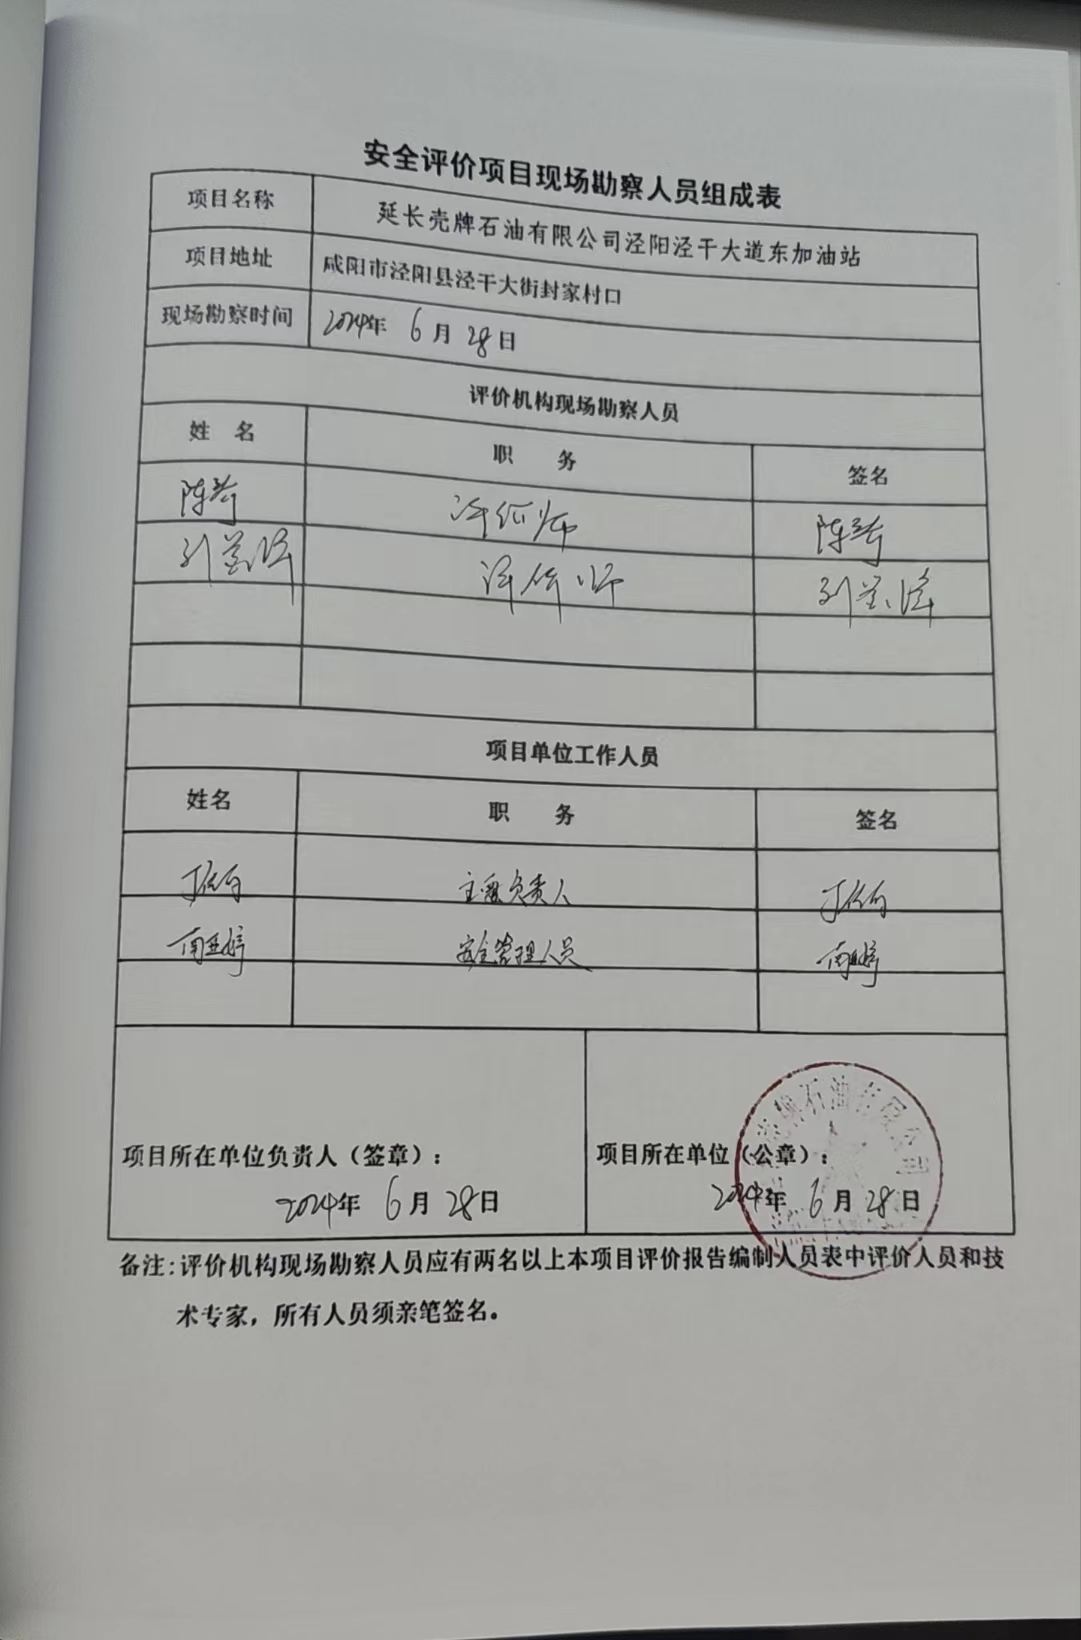 安全评价项目现场勘察人员组成表
项目名称 延长壳牌石油有限公司泾阳泾干大道东加油站
项目地址 咸阳市泾阳县泾干大街封家村口
现场勘察时间 2024年 6月 28日
评价机构现场勘察人员
姓 名 职 务 签名
陈 评价师 陈
刘 评价师 刘
项目单位工作人员
姓名 职 务 签名
丁 主要负责人 丁
南亚婷 安全管理人员 南亚婷
项目所在单位负责人（签章）： 项目所在单位（公章）：
2024年 6月 28日 2024年 6月 28日
石油有限公司
备注:评价机构现场勘察人员应有两名以上本项目评价报告编制人员表中评价人员和技
术专家，所有人员须亲笔签名。